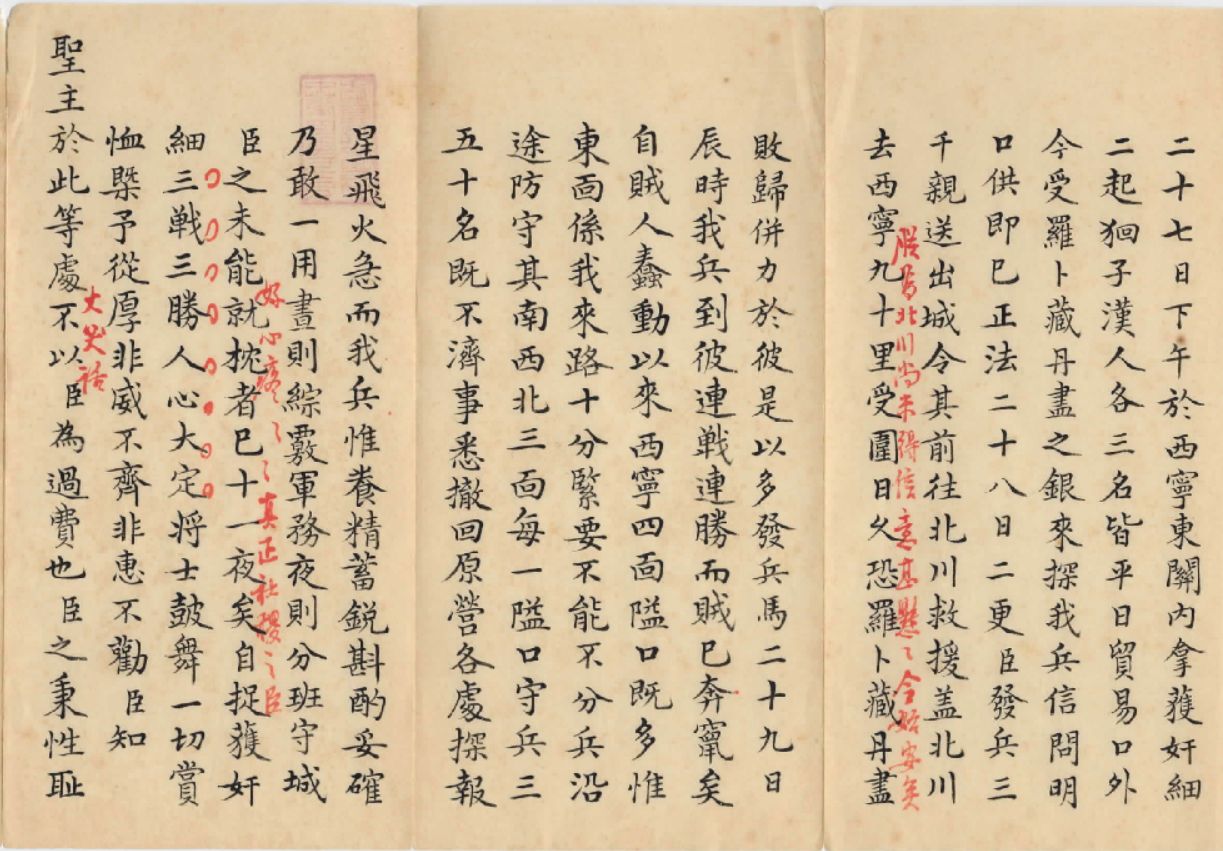 二十七日下午於西寧東關內拿獲奸細
二起狪子漢人各三名皆平日貿易口外
今受羅卜藏丹盡之銀來探我兵信問明
口供即巳正法二十八日二更臣發兵三
千親送出城令其前往北川救援盖北川
朕為北川尚未得信意甚懸〻今始安矣
去西寧九十里受圍日久恐羅卜藏丹盡
敗歸併力於彼是以多發兵馬二十九日
辰時我兵到彼連戰連勝而賊巳奔竄矣
自賊人蠢動以來西寧四面隘口既多惟
東面係我來路十分緊要不能不分兵沿
途防守其南西北三面每一隘口守兵三
五十名既不濟事悉撤回原營各處探報
星飛火急而我兵惟養精蓄銳斟酌妥確
乃敢一用晝則綜覈軍務夜則分班守城
好心疼〻〻真正社稷之臣
臣之未能就枕者巳十一夜矣自捉獲奸
細三戰三勝人心大定將士鼓舞一切賞
恤槩予從厚非威不齊非惠不勸臣知
大笑話
聖主於此等處不以臣為過費也臣之秉性耻